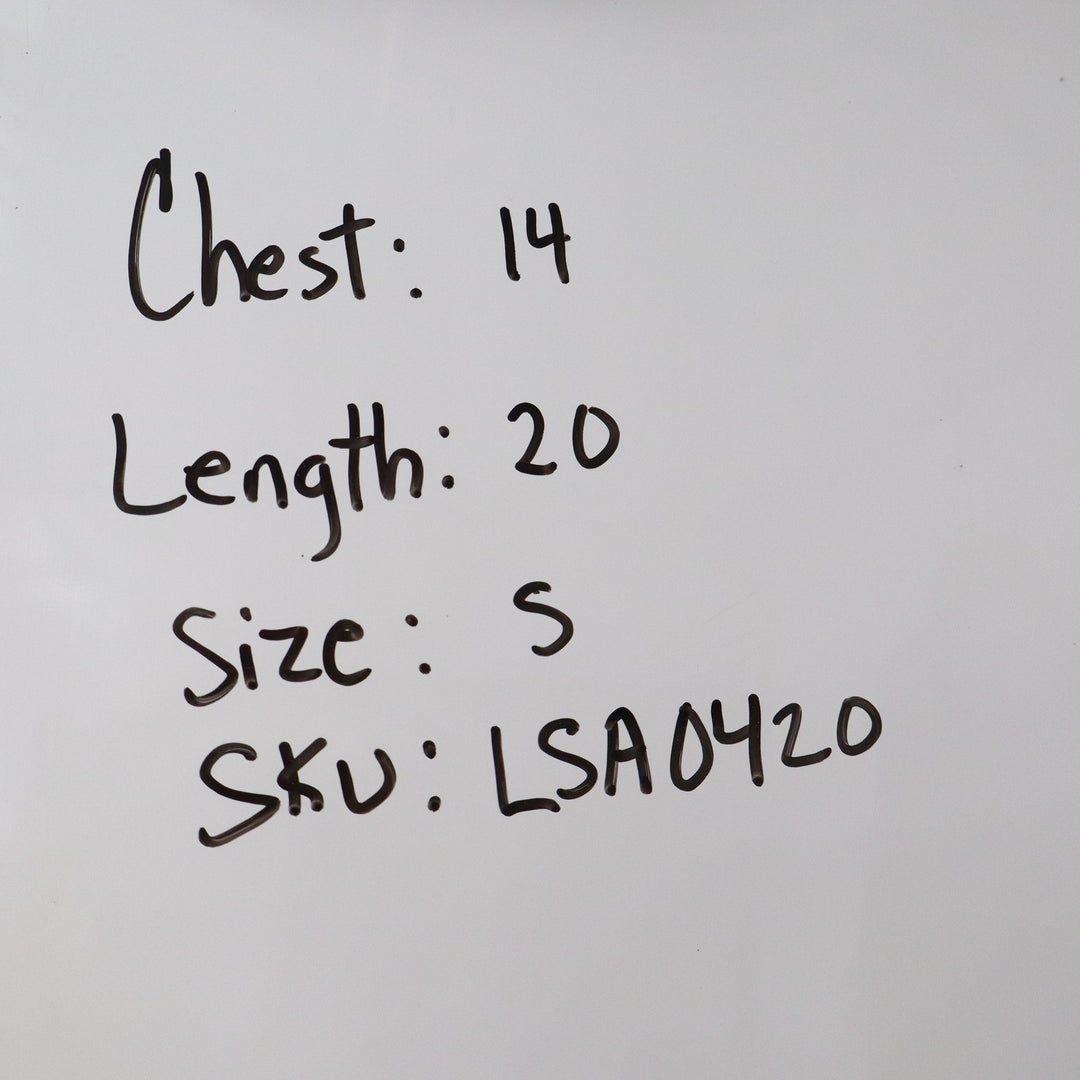 Chest: 14
Length: 20
Size: S
SKU: LSA0420